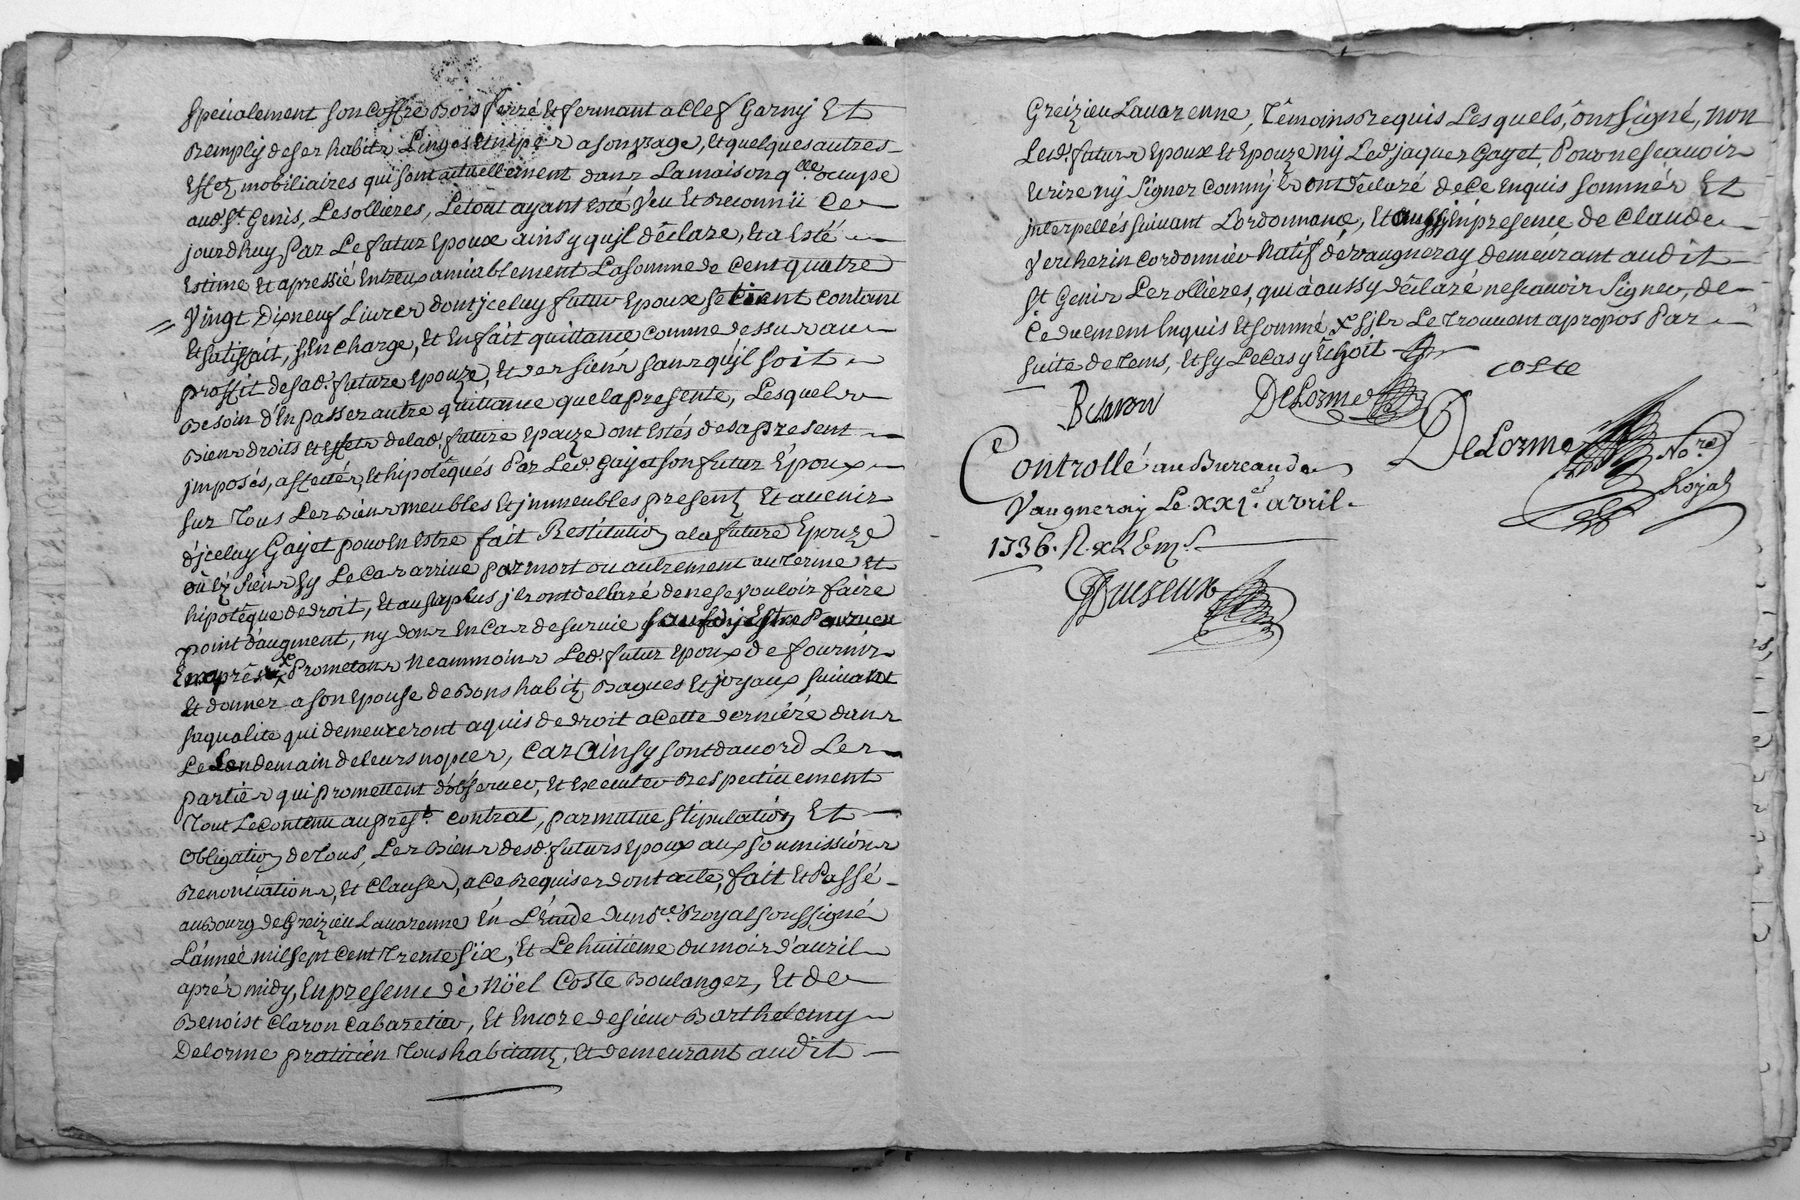 specialement son coffre Bois ferré et fermant a Clef Garny Et
Remply de ses habits Linges et nipes a son usage, et quelques autres
effets mobiliaires qui sont actuellement dans La maison q.lle ocupe
aud. S.t Genis, Les ollieres, Le tout ayant esté veu Et Reconnü Ce
jourdhuy Par Le futur Epoux ainsy qu'jl déclare, Et a Esté
Estimé Et apressié Entreux amiablement La somme de Cent quatre
Vingt Dix neuf Livres dont jceluy futur Epoux se tient contant
Et satisfait, s'En charge, Et En fait quittance comme dessus au
proffit de sad. future Epouze, Et des siens sans qu'jl soit
Besoin d'En passer autre quittance que la presente, Lesquels
Biens droits et effets de lad. future Epouze ont Estés des a present
jmposés, affectés, Et hipotéqués Par Led. Gayet son futur Époux
sur Tous Les Biens meubles Et jmmeubles presents Et avenir
d'jceluy Gayet pour En Estre fait Restitution a la future Epouze
où Ez siens sy Le Cas arrive par mort ou autrement au Terme Et
hipotéque de droit, Et au surplus jls ont declaré de ne se vouloir faire
point d'augment, ny dons En Cas de survie sauf d'y Estre Pourveu
Enaprés Prometant Neammoins Led. futur Epoux de fournir
Et donner a son Epouse de Bons habits Bagues Et joyaux suivant
sa qualité qui demeureront aquis de droit a Cette derniére dans
Le Lendemain de leurs nopces, Car Ainsy sont d'acord Les
parties qui promettent d'observer, Et Executer Respectivement
Tout Le contenu au pres.t contrat, par mutue stipulation Et
obligation de Tous, Les Biens desd. futurs Epoux aux soumissions
Renonciations, Et Clauses, a Ce Requises dont acte, fait Et Passé
au Bourg de Greizieu Lavarenne En L'Étude du no.re Royal soussigné
L'année mil sept Cent Trente six, Et Le huitieme du mois d'avril
aprés midy, En presence de Nöel Coste Boulanger, Et de
Benoist Claron Cabaretier, Et Encore de sieur Barthelemy
Delorme praticien Tous habitants, Et demeurant audit
Greizieu Lavarenne, Témoins Requis Lesquels, ont signé, non
Lesd. futurs Epoux Et Epouze ny Led. jaques Gayet, Pour ne scavoir
Ecrire ny signer comm'jls ont déclaré de Ce Enquis sommés Et
jnterpellés suivant L'ordonnance, Et aussy En presence de Claude
Vercherin cordonnier Natif de Vaugneray demeurant audit
S.t Genis Les ollieres, qui a aussy déclaré ne scavoir signer, de
Ce duement Enquis Et sommé, x s'jls Le Trouvent apropos Par
suite de Tems, Et sy Le Cas y Échoit
Coste
B Claron
DeLorme
DeLorme No.re Royal
Controllé au Bureau de
Vaugneray Le XXI.e avril
1736.
Duiseux